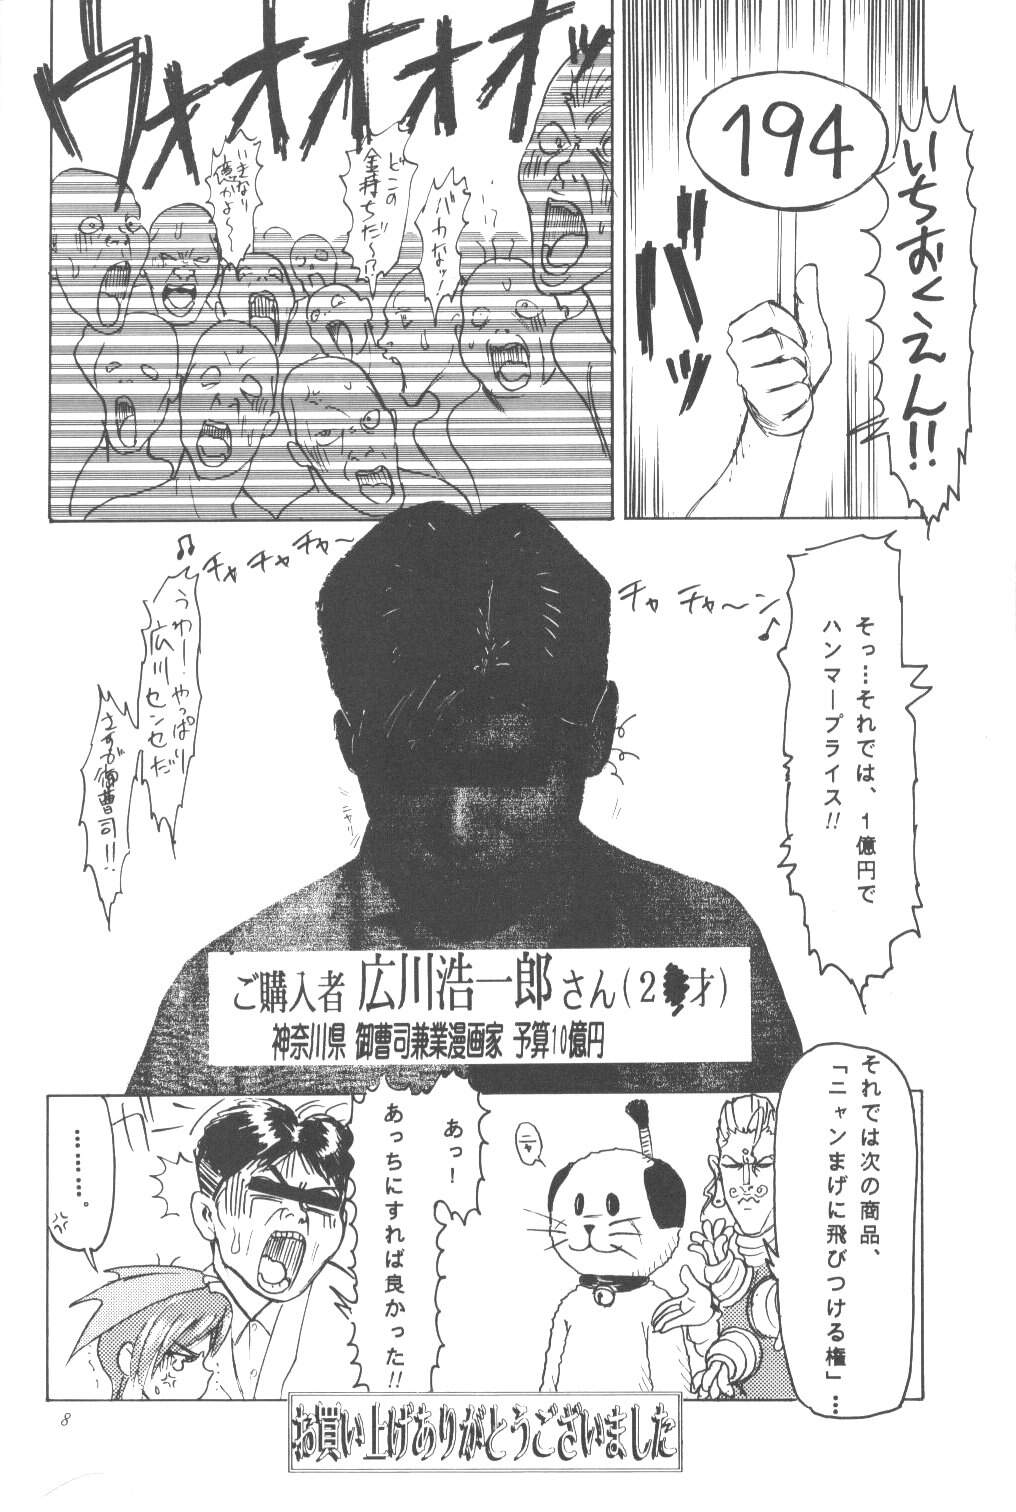 194
いちおくえん!!
バッ
ウォオオオオッ
バカなッ!
どこの
金持ちだ～!?
いきなり
億かよ～
そっ…それでは、1億円で
ハンマープライス!!
チャ チャ～ン♪
チャ チャ チャ～♪
うわー!やっぱり
広川センセだ
さすが御曹司!!
ニヤリ
ご購入者 広川浩一郎さん(2 才)
神奈川県 御曹司兼業漫画家 予算10億円
それでは次の商品、
「ニャンまげに飛びつける権」…
ニャ
あっ!
あっちにすれば良かった!!
………。
お買い上げありがとうございました
8